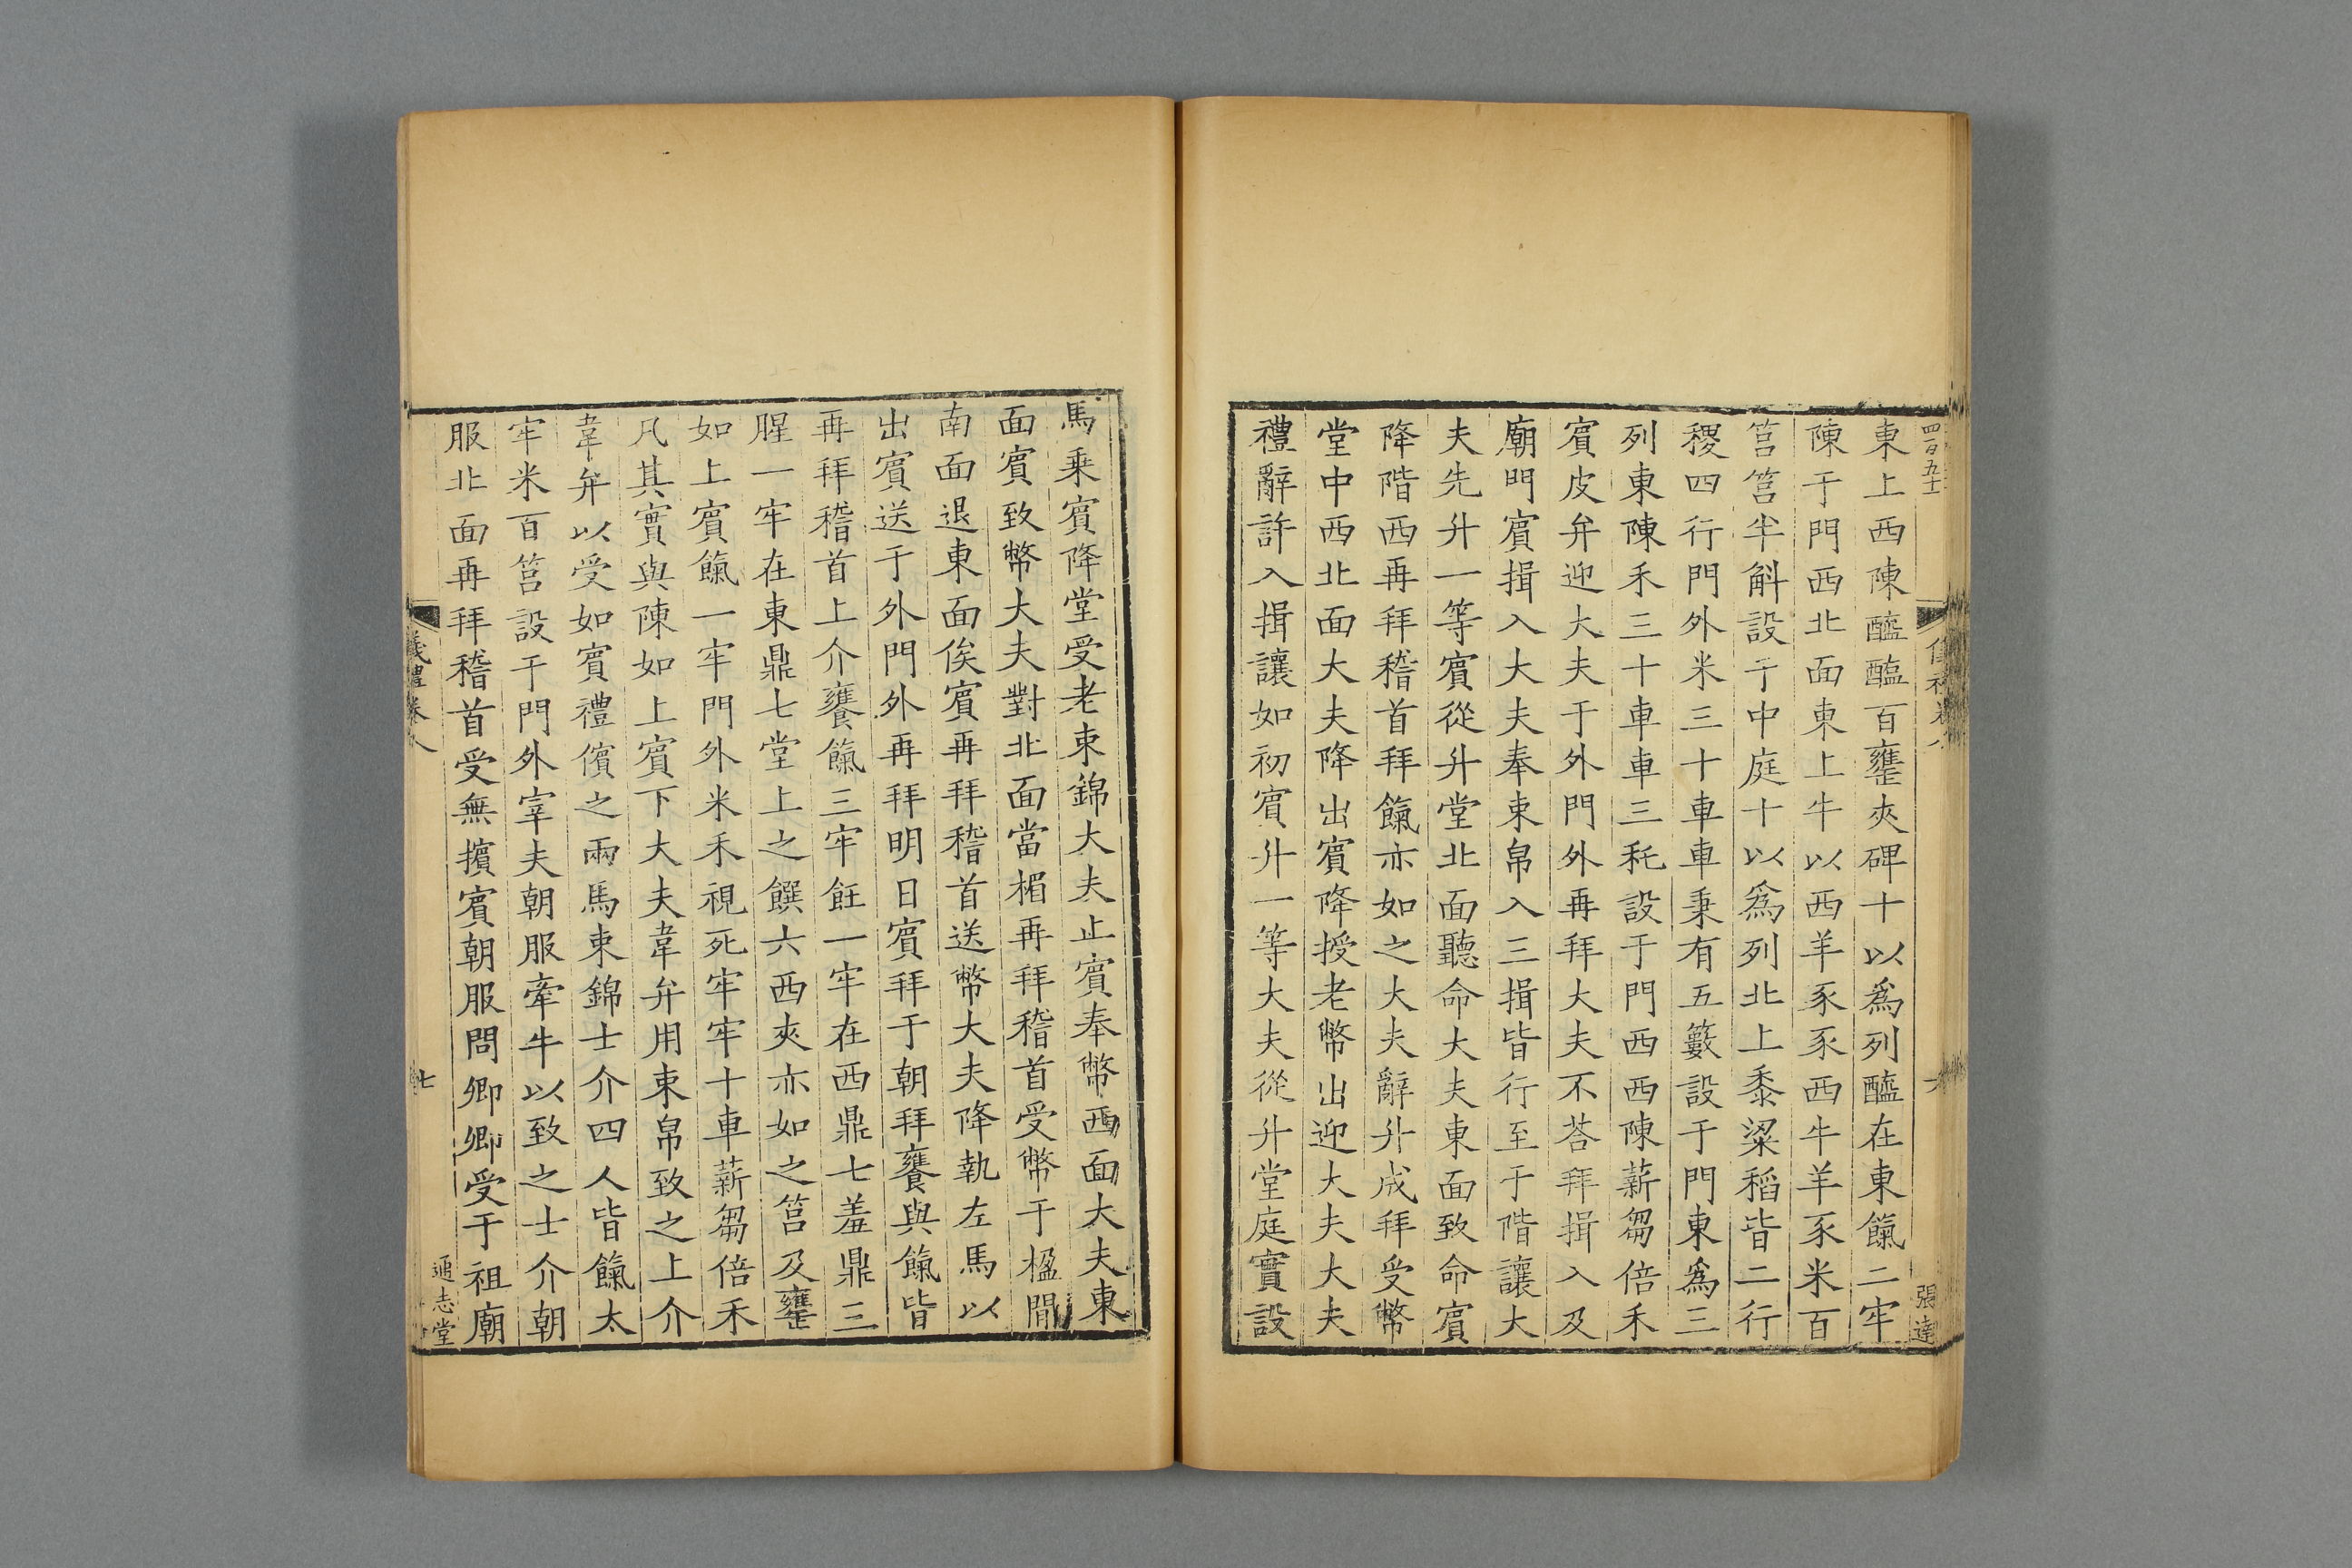 四百五十
東上西陳醯醢百罋夾碑十以爲列醯在東餼二牢
陳于門西北面東上牛以西羊豕豕西牛羊豕米百
筥筥半斛設于中庭十以爲列北上黍粱稻皆二行
稷四行門外米三十車車秉有五籔設于門東爲三
列東陳禾三十車車三秅設于門西西陳薪芻倍禾
賓皮弁迎大夫于外門外再拜大夫不荅拜揖入及
廟門賓揖入大夫奉束帛入三揖皆行至于階讓大
夫先升一等賓從升堂北面聽命大夫東面致命賓
降階西再拜稽首拜餼亦如之大夫辭升成拜受幣
堂中西北面大夫降出賓降授老幣出迎大夫大夫
禮辭許入揖讓如初賓升一等大夫從升堂庭實設
張達
馬乘賓降堂受老束錦大夫止賓奉幣西面大夫東
面賓致幣大夫對北面當楣再拜稽首受幣于楹間
南面退東面俟賓再拜稽首送幣大夫降執左馬以
出賓送于外門外再拜明日賓拜于朝拜饔與餼皆
再拜稽首上介饔餼三牢飪一牢在西鼎七羞鼎三
腥一牢在東鼎七堂上之饌六西夾亦如之筥及罋
如上賓餼一牢門外米禾視死牢牢十車薪芻倍禾
凡其實與陳如上賓下大夫韋弁用束帛致之上介
韋弁以受如賓禮儐之兩馬束錦士介四人皆餼太
牢米百筥設于門外宰夫朝服牽牛以致之士介朝
服北面再拜稽首受無擯賓朝服問卿卿受于祖廟
儀禮卷八
七
通志堂